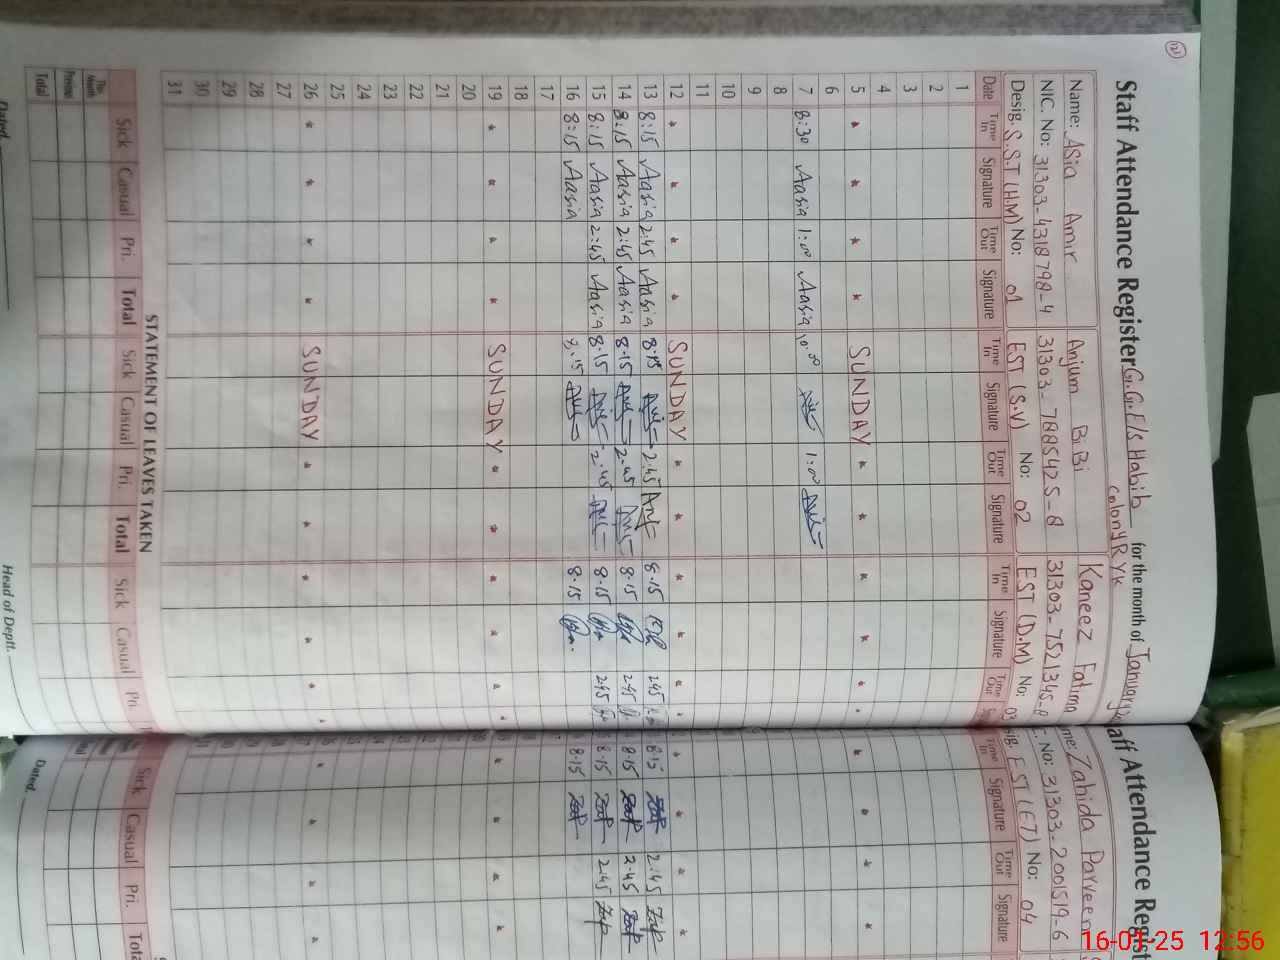 121
Staff Attendance Register G.G.E/S Habib Colony RYK for the month of January
Name: Asia Amir
Anjum BiBi
Kaneez Fatima
NIC. No: 31303-4318798-4
31303-7885425-8
31303-7521345-8
Desig. S.S.T (H.M) No: 01
EST (S.V) No: 02
EST (D.M) No: 03
Date Time In Signature Time Out Signature Time In Signature Time Out Signature Time In Signature Time Out
1
2
3
4
5 * * * * SUNDAY * * * * * *
6
7 8:30 Aasia 1:00 Aasia 10:00 1:00
8
9
10
11
12 * * * * SUNDAY * * * * * *
13 8:15 Aasia 2:45 Aasia 8:15 2:45 8.15 2.45
14 8:15 Aasia 2:45 Aasia 8.15 2.45 8.15 2.45
15 8:15 Aasia 2:45 Aasia 8.15 2.45 8.15 2.45
16 8:15 Aasia 8.15 8.15
17
18
19 * * * * SUNDAY * * * * * *
20
21
22
23
24
25
26 * * * * SUNDAY * * * * * *
27
28
29
30
31
STATEMENT OF LEAVES TAKEN
Sick Casual Pri. Total Sick Casual Pri. Total Sick Casual Pri
This Month
Previous
Total
Dated.
Head of Deptt.
Staff Attendance Regist
Name: Zahida Parveen
No: 31303-2001519-6
Desig. EST (ET) No: 04
Time In Signature Time Out Signature
* * * *
* * * *
8.15 2:45
8.15 2.45
8.15 2.45
8.15
* * * *
* * * *
Sick Casual Pri. Tota
Dated.
16-01-25 12:56